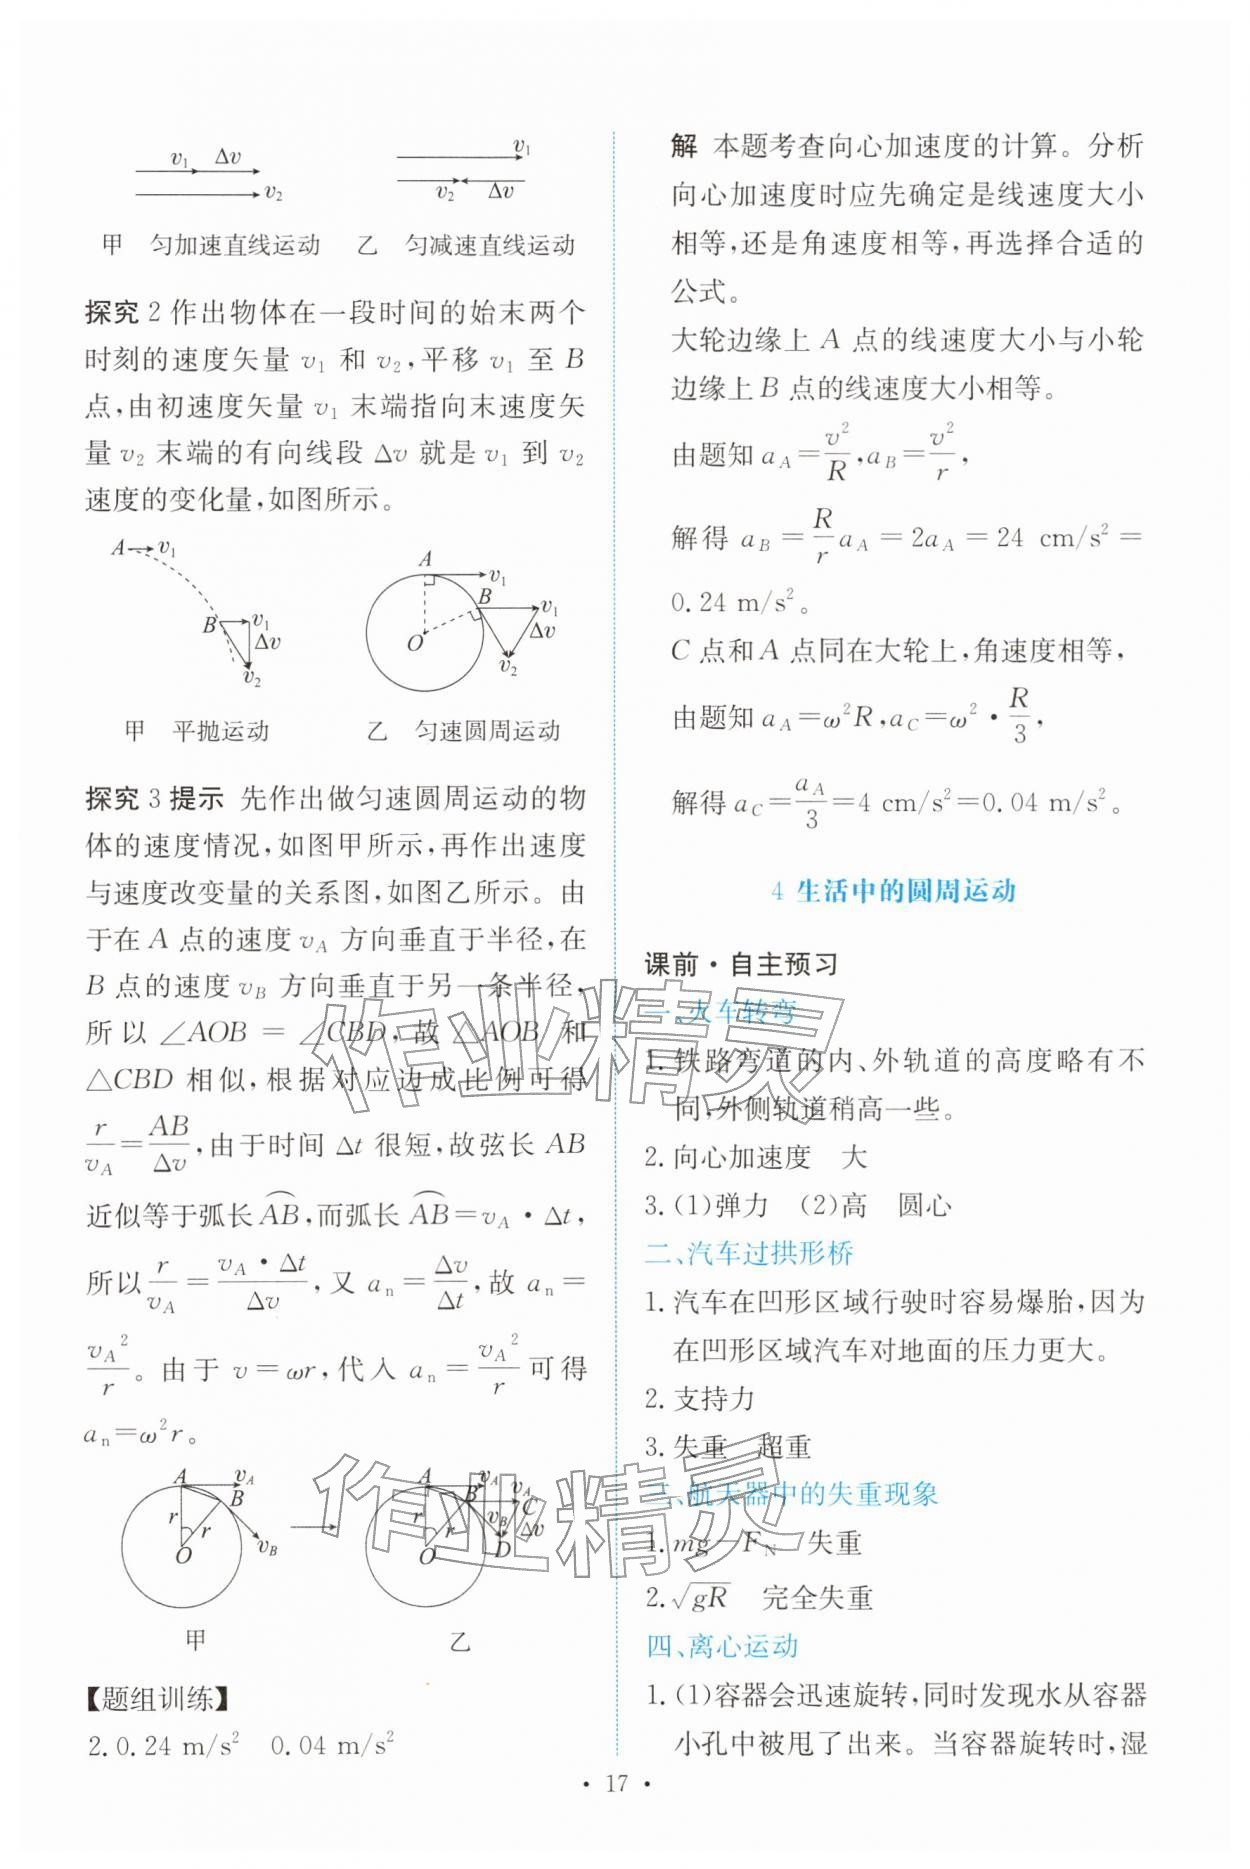 v₁ Δv
v₂
v₁
v₂ Δv
甲 匀加速直线运动 乙 匀减速直线运动
探究 2 作出物体在一段时间的始末两个
时刻的速度矢量 v₁ 和 v₂,平移 v₁ 至 B
点,由初速度矢量 v₁ 末端指向末速度矢
量 v₂ 末端的有向线段 Δv 就是 v₁ 到 v₂
速度的变化量,如图所示。
A v₁
B v₁
Δv
v₂
A
v₁
B v₁
O Δv
v₂
甲 平抛运动 乙 匀速圆周运动
探究 3 提示 先作出做匀速圆周运动的物
体的速度情况,如图甲所示,再作出速度
与速度改变量的关系图,如图乙所示。由
于在 A 点的速度 v_A 方向垂直于半径,在
B 点的速度 v_B 方向垂直于另一条半径,
所以 ∠AOB = ∠CBD,故 △AOB 和
△CBD 相似,根据对应边成比例可得
r/v_A=AB/Δv,由于时间 Δt 很短,故弦长 AB
近似等于弧长 A͡B,而弧长 A͡B=v_A·Δt,
所以 r/v_A = v_A·Δt/Δv,又 a_n = Δv/Δt,故 a_n =
v_A²/r。由于 v=ωr,代入 a_n = v_A²/r 可得
a_n=ω²r。
A v_A
B
r
r
O v_B
甲
A v_A
B v_A
C
r v_B Δv
r
O D
乙
【题组训练】
2. 0.24 m/s² 0.04 m/s²
解 本题考查向心加速度的计算。分析
向心加速度时应先确定是线速度大小
相等,还是角速度相等,再选择合适的
公式。
大轮边缘上 A 点的线速度大小与小轮
边缘上 B 点的线速度大小相等。
由题知 a_A=v²/R,a_B=v²/r,
解得 a_B = R/r a_A = 2a_A = 24 cm/s² =
0.24 m/s²。
C 点和 A 点同在大轮上,角速度相等,
由题知 a_A=ω²R,a_C=ω²·R/3,
解得 a_C=a_A/3=4 cm/s²=0.04 m/s²。
4 生活中的圆周运动
课前·自主预习
一、火车转弯
1. 铁路弯道的内、外轨道的高度略有不
同,外侧轨道稍高一些。
2. 向心加速度 大
3. (1)弹力 (2)高 圆心
二、汽车过拱形桥
1. 汽车在凹形区域行驶时容易爆胎,因为
在凹形区域汽车对地面的压力更大。
2. 支持力
3. 失重 超重
三、航天器中的失重现象
1. mg−F_N 失重
2. √gR 完全失重
四、离心运动
1. (1)容器会迅速旋转,同时发现水从容器
小孔中被甩了出来。当容器旋转时,湿
· 17 ·
作业精灵
作业精灵